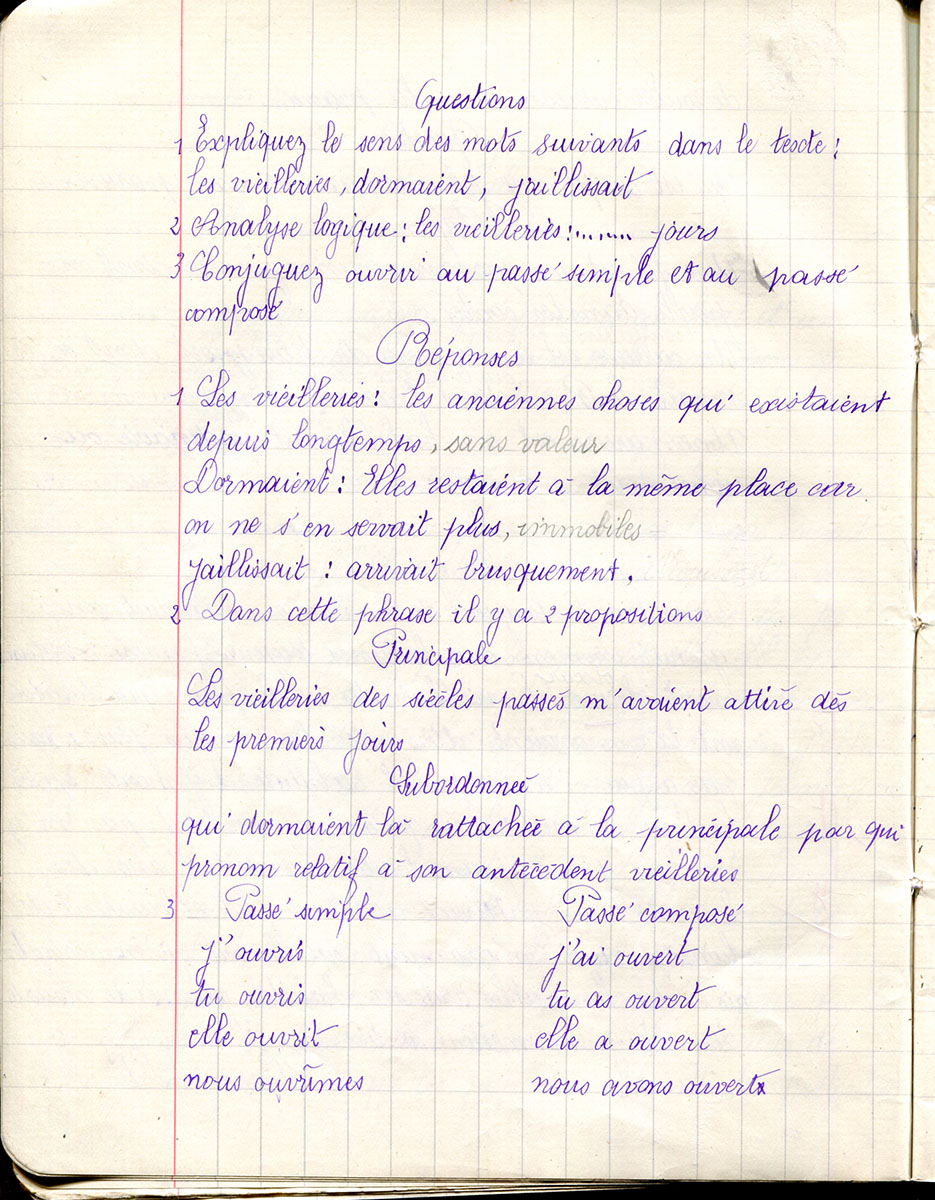 Questions
1 Expliquez le sens des mots suivants dans le texte :
les vieilleries, dormaient, jaillissait
2 Analyse logique : les vieilleries :........ jours
3 Conjuguez ouvrir au passé simple et au passé
composé
Réponses
1 Les vieilleries : les anciennes choses qui existaient
depuis longtemps, sans valeur
Dormaient : Elles restaient à la même place car
on ne s'en servait plus, immobiles
jaillissait : arrivait brusquement.
2 Dans cette phrase il y a 2 propositions
Principale
Les vieilleries des siècles passés m'avaient attiré dès
les premiers jours
Subordonnée
qui dormaient là rattachée à la principale par qui
pronom relatif à son antécédent vieilleries
3 Passé simple Passé composé
j'ouvris j'ai ouvert
tu ouvris tu as ouvert
elle ouvrit elle a ouvert
nous ouvrîmes nous avons ouvert